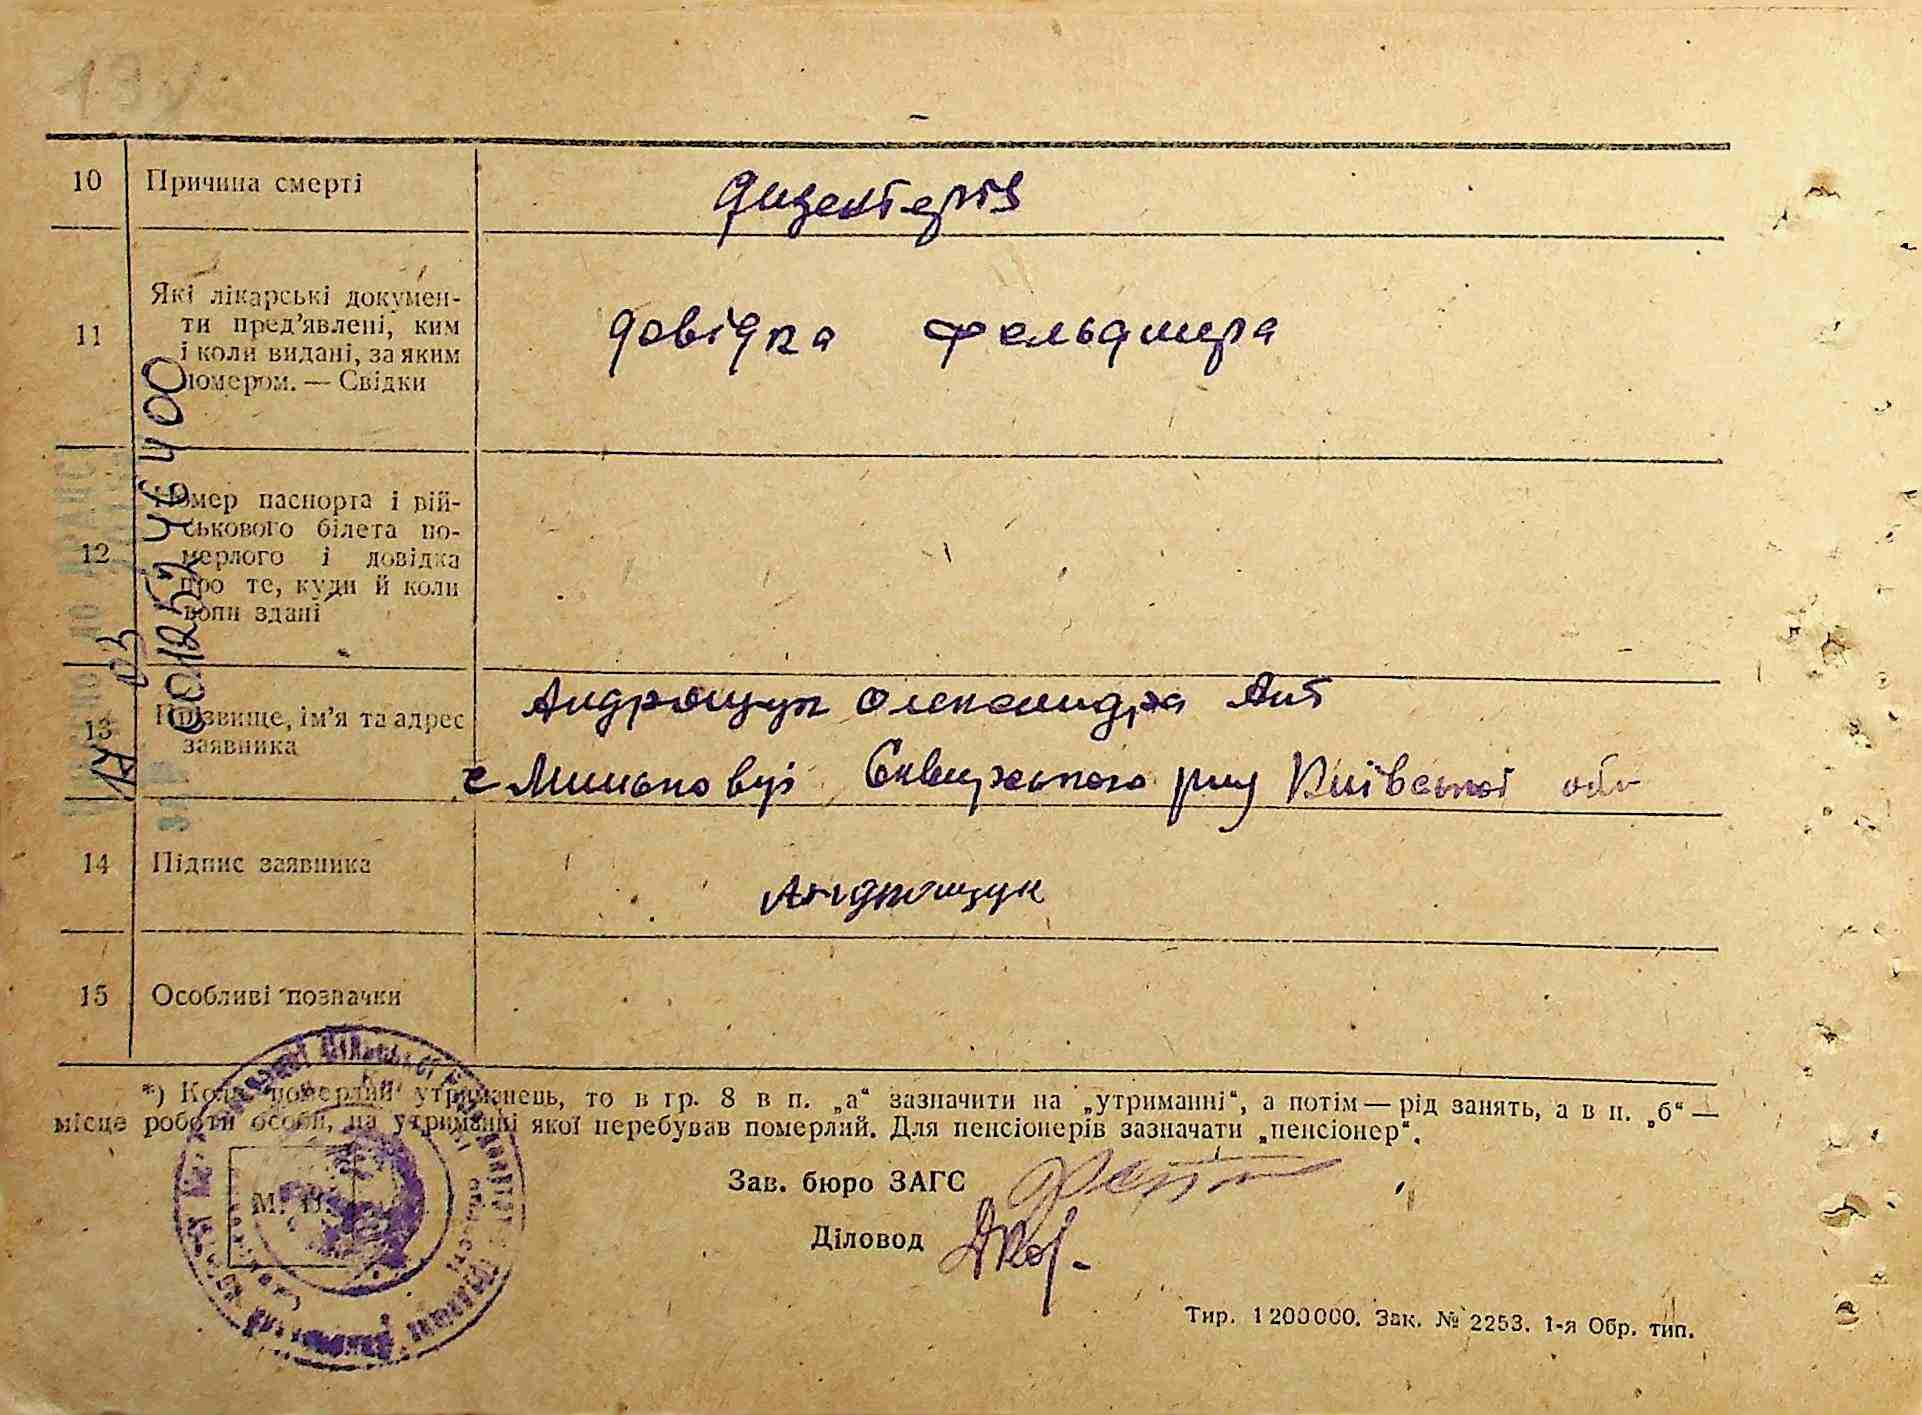 10 Причина смерті дизентерія
11 Які лікарські докумен-
ти пред’явлені, ким
і коли видані, за яким
номером. — Свідки
довідка фельдшера
12 Номер паспорта і вій-
ськового білета по-
мерлого і довідка
про те, куди й коли
вони здані
13 Прізвище, ім’я та адрес
заявника
Андрощук Олександра Ант
с Миньковці Сквирського р-ну Київської обл
14 Підпис заявника Андрощук
15 Особливі позначки
*) Коли померлий утриманець, то в гр. 8 в п. „а“ зазначити на „утриманні“, а потім — рід занять, а в п. „б“ —
місце роботи особи, на утриманні якої перебував померлий. Для пенсіонерів зазначати „пенсіонер“.
М. П.
Зав. бюро ЗАГС
Діловод
Тир. 1200000. Зак. № 2253. 1-я Обр. тип.